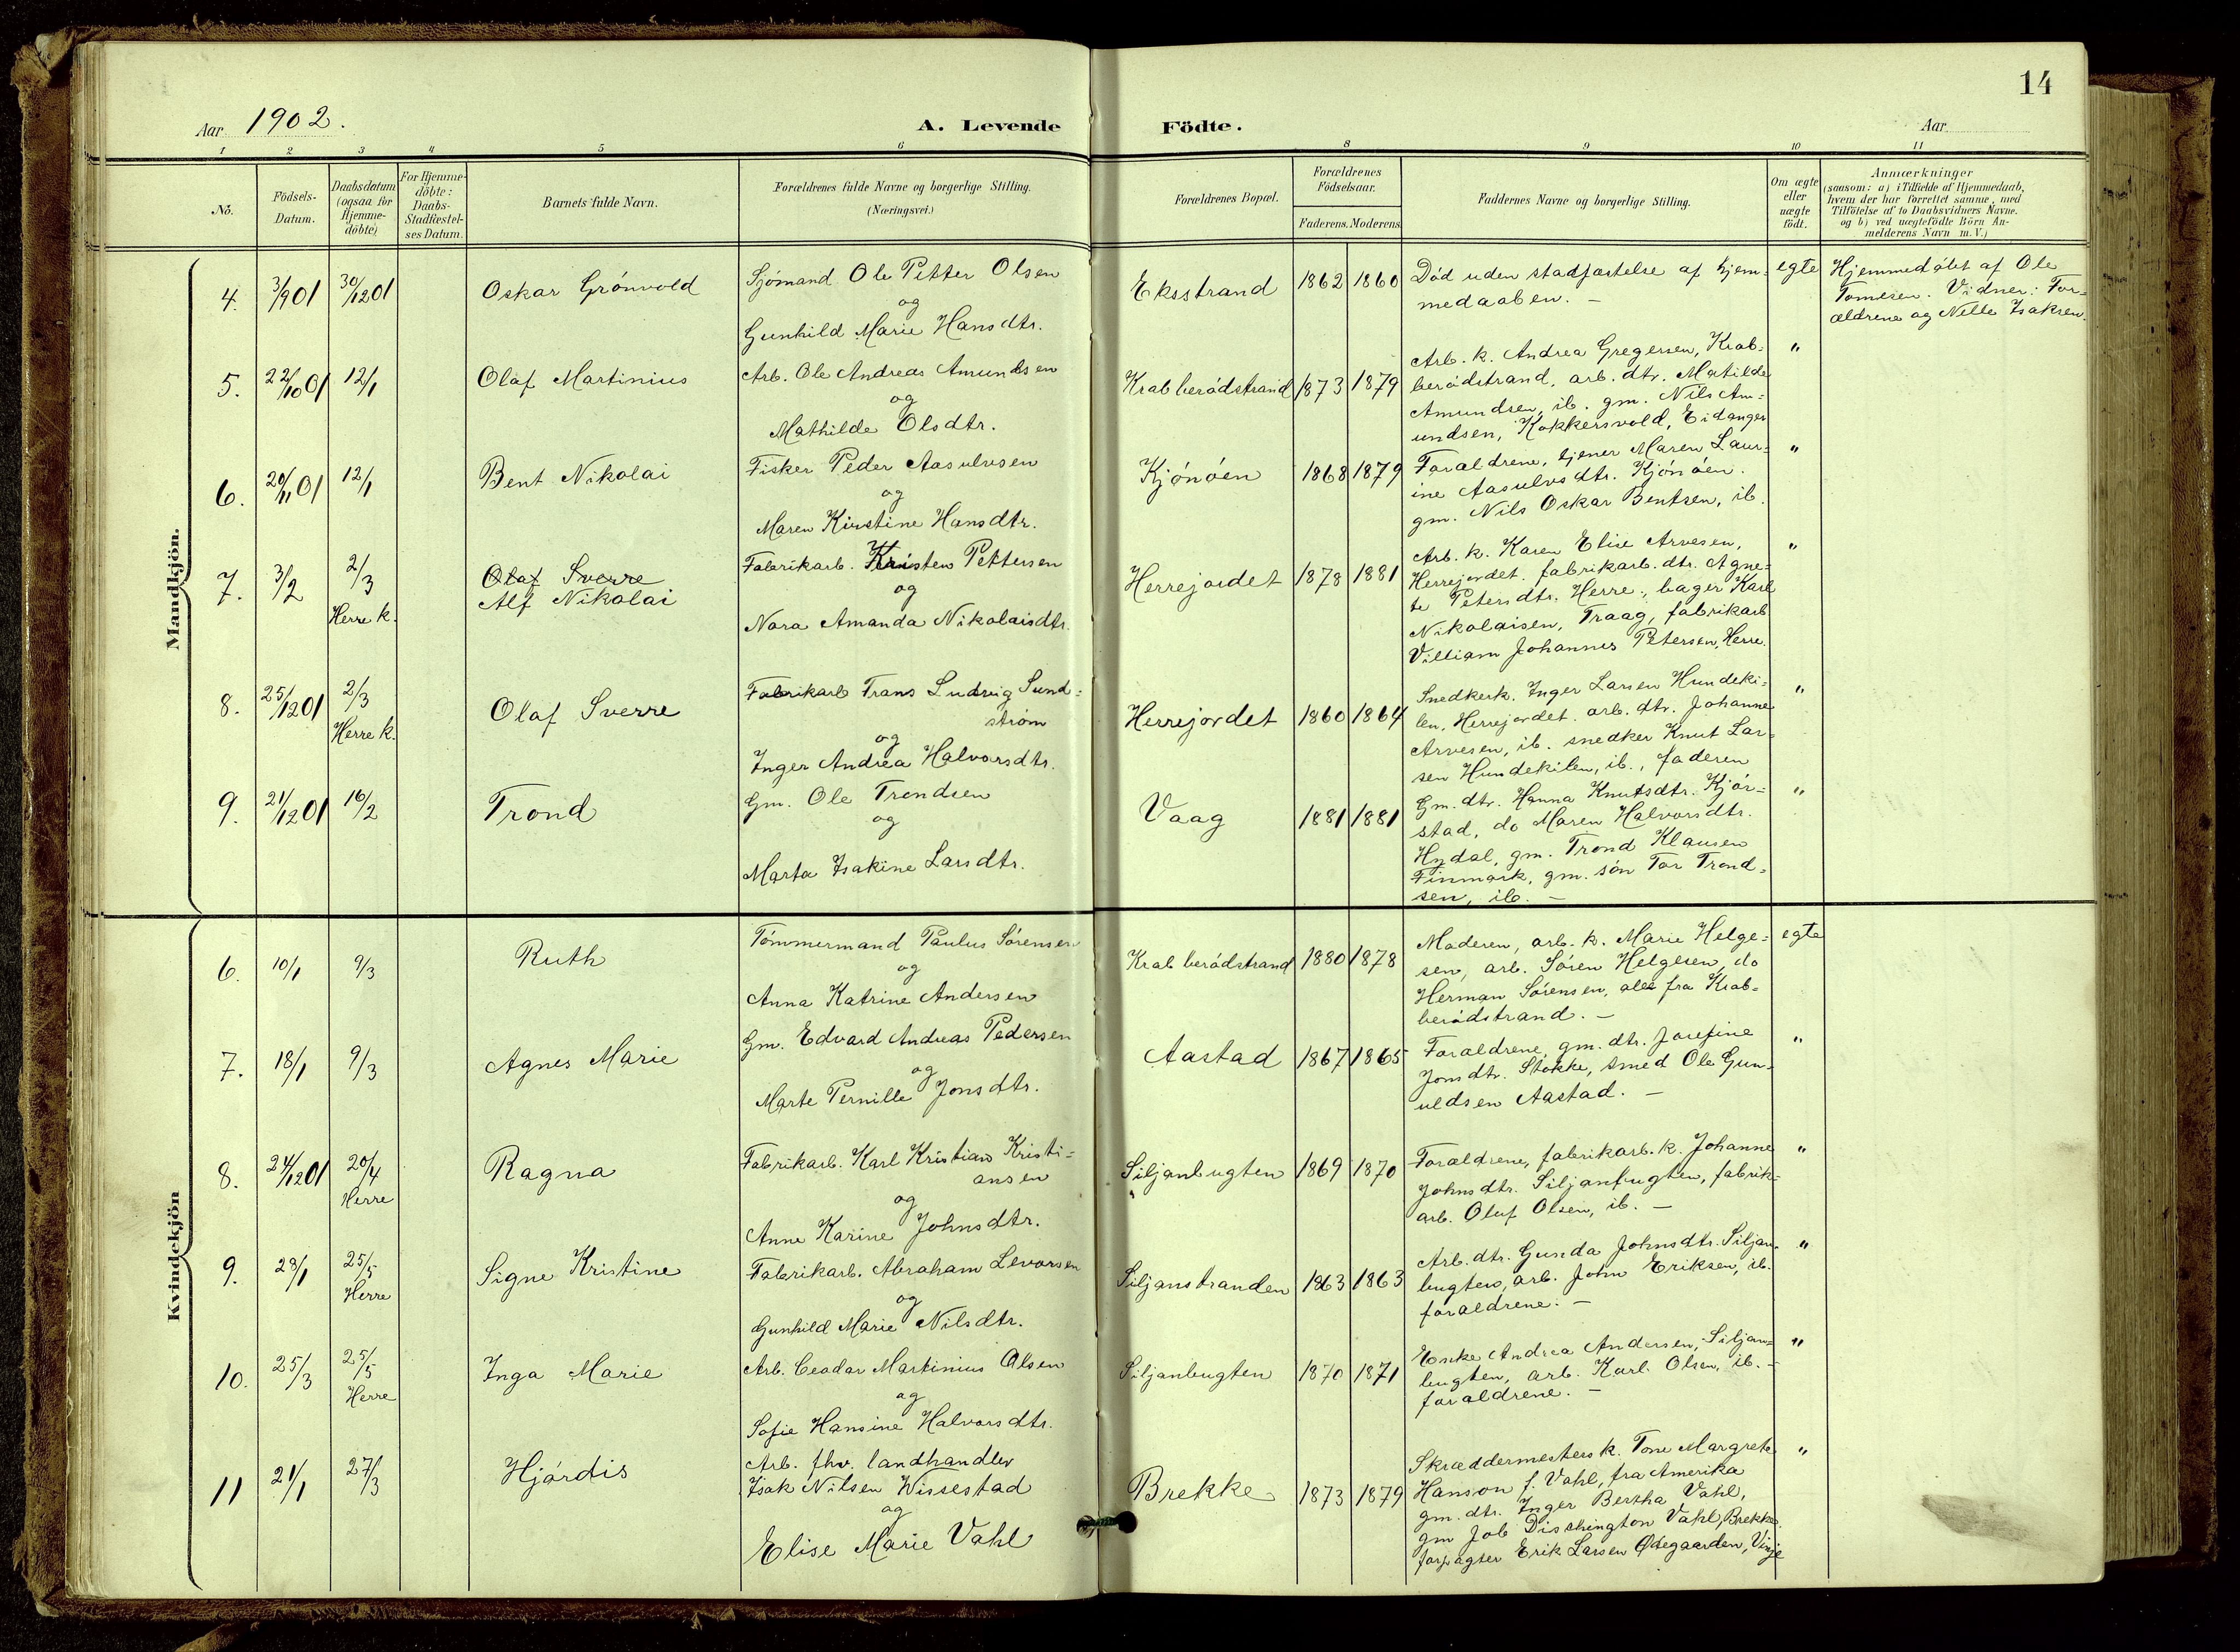 14
Aar 1902.
A. Levende Födte.
Aar
1 2 3 4 5 6 8 9 10 11
No.
Födsels-
Datum.
Daabsdatum
(ogsaa for
Hjemme-
döbte)
For Hjemme-
döbte:
Daabs-
Stadfæstel-
ses Datum.
Barnets fulde Navn.
Forældrenes fulde Navne og borgerlige Stilling.
(Næringsvei.)
Forældrenes Bopæl.
Forældrenes
Födselsaar.
Faderens. Moderens.
Faddernes Navne og borgerlige Stilling.
Om ægte
eller
uægte
födt.
Anmærkninger
(saasom: a) i Tilfælde af Hjemmedaab,
hvem der har forrettet samme, med
Tilföielse af to Daabsvidners Navne.
og b) ved uægtefödte Börn An-
melderens Navn m. V.)
Mandkjön.
4.
3/9 01
30/12 01
Oskar Grönvold
Sjömand Ole Petter Olsen
og
Gunhild Marie Hansdtr.
Eksstrand
1862 1860
Död uden stadfæstelse af hjem-
medaaben. –
egte
Hjemmedöbt af Ole
Tomesen. Vidner: For-
ældrene og Nelle Isaksen.
5.
22/10 01
12/1
Olaf Martinius
Arb. Ole Andreas Amundsen
og
Mathilde Olsdtr.
Krabberödstrand
1873 1879
Arb. k. Andrea Gregersen, Krab-
berödstrand, arb. dtr. Matilde
Amundsen, ib. gm. Nils Am-
undsen, Kokkersvold, Eidanger
"
6.
20/11 01
12/1
Bent Nikolai
Fisker Peder Aasulvsen
og
Maren Kirstine Hansdtr.
Kjönöen
1868 1879
Forældrene, tjener Maren Laur-
ine Aasulvsdtr. Kjönöen.
gm. Nils Oskar Bentsen, ib.
"
7.
3/2
2/3
Herre k.
Olaf Sverre
Alf Nikolai
Fabrikarb. Kristen Pettersen
og
Nora Amanda Nikolaisdtr.
Herrejordet
1878 1881
Arb. k. Karen Elise Arvesen,
Herrejordet. fabrikarb. dtr. Agne-
te Petersdtr. Herre, bager Karl
Nikolaisen, Traag, fabrikarb
Villiam Johannes Petersen, Herre.
"
8.
25/12 01
2/3
Herre k.
Olaf Sverre
Fabrikarb Frans Ludvig Sund-
ström
og
Inger Andrea Halvorsdtr.
Herrejordet
1860 1864
Snedkerk. Inger Larsen Hundeki-
len, Herrejordet. arb. dtr. Johanne
Arvesen, ib. snedker Knut Lar-
sen Hundekilen, ib., faderen
"
9.
21/12 01
16/2
Trond
Gm. Ole Trondsen
og
Marta Isakine Larsdtr.
Vaag
1881 1881
Gm. dtr. Hanna Knutsdtr. Kjör-
stad, do Maren Halvorsdtr.
Hydal, gm. Trond Klausen
Finmark, gm. sön Tor Trond-
sen, ib. –
"
Kvindekjön
6.
10/1
9/3
Ruth
Tömmermand Paulus Sörensen
og
Anna Katrine Andersen
Krabberödstrand
1880 1878
Moderen, arb. k. Marie Helge-
sen, arb. Sören Helgesen, do
Herman Sörensen, alle fra Krab-
berödstrand. –
egte
7.
18/1
9/3
Agnes Marie
Gm. Edvard Andreas Pedersen
og
Marte Pernille Jonsdtr.
Aastad
1867 1865
Forældrene, gm. dtr. Josefine
Jonsdtr. Stokke, smed Ole Gun-
uldsen Aastad. –
"
8.
24/12 01
20/4
Herre
Ragna
Fabrikarb. Karl Kristian Kristi-
ansen
og
Anne Karine Johnsdtr.
Siljanbugten
1869 1870
Forældrene, fabrikarb. k. Johanne
Johnsdtr. Siljanbugten, fabrik-
arb. Oluf Olsen, ib. –
"
9.
23/1
25/5
Herre
Signe Kristine
Fabrikarb. Abraham Levorsen
og
Gunhild Marie Nilsdtr.
Siljanstranden
1863 1863
Arb. dtr. Gunda Johnsdtr. Siljan-
bugten, arb. John Eriksen, ib.
forældrene. –
"
10.
25/3
25/5
Herre
Inga Marie
Arb. Ceodor Martinius Olsen
og
Sofie Hansine Halvorsdtr.
Siljanbugten
1870 1871
Enke Andrea Andersen, Siljan-
bugten, arb. Karl Olsen, ib. –
forældrene. –
"
11
21/1
27/3
Hjördis
Arb. fhv. landhandler
Isak Nilsen Wissestad
og
Elise Marie Vahl
Brekke
1873 1879
Skræddermesters k. Tone Margrete
Hanson f. Vahl, fra Amerika
gm. dtr. Inger Bertha Vahl,
gm Job Disschington Vahl, Brekke.
forpagter Erik Larsen Ødegaarden, Vinje
"